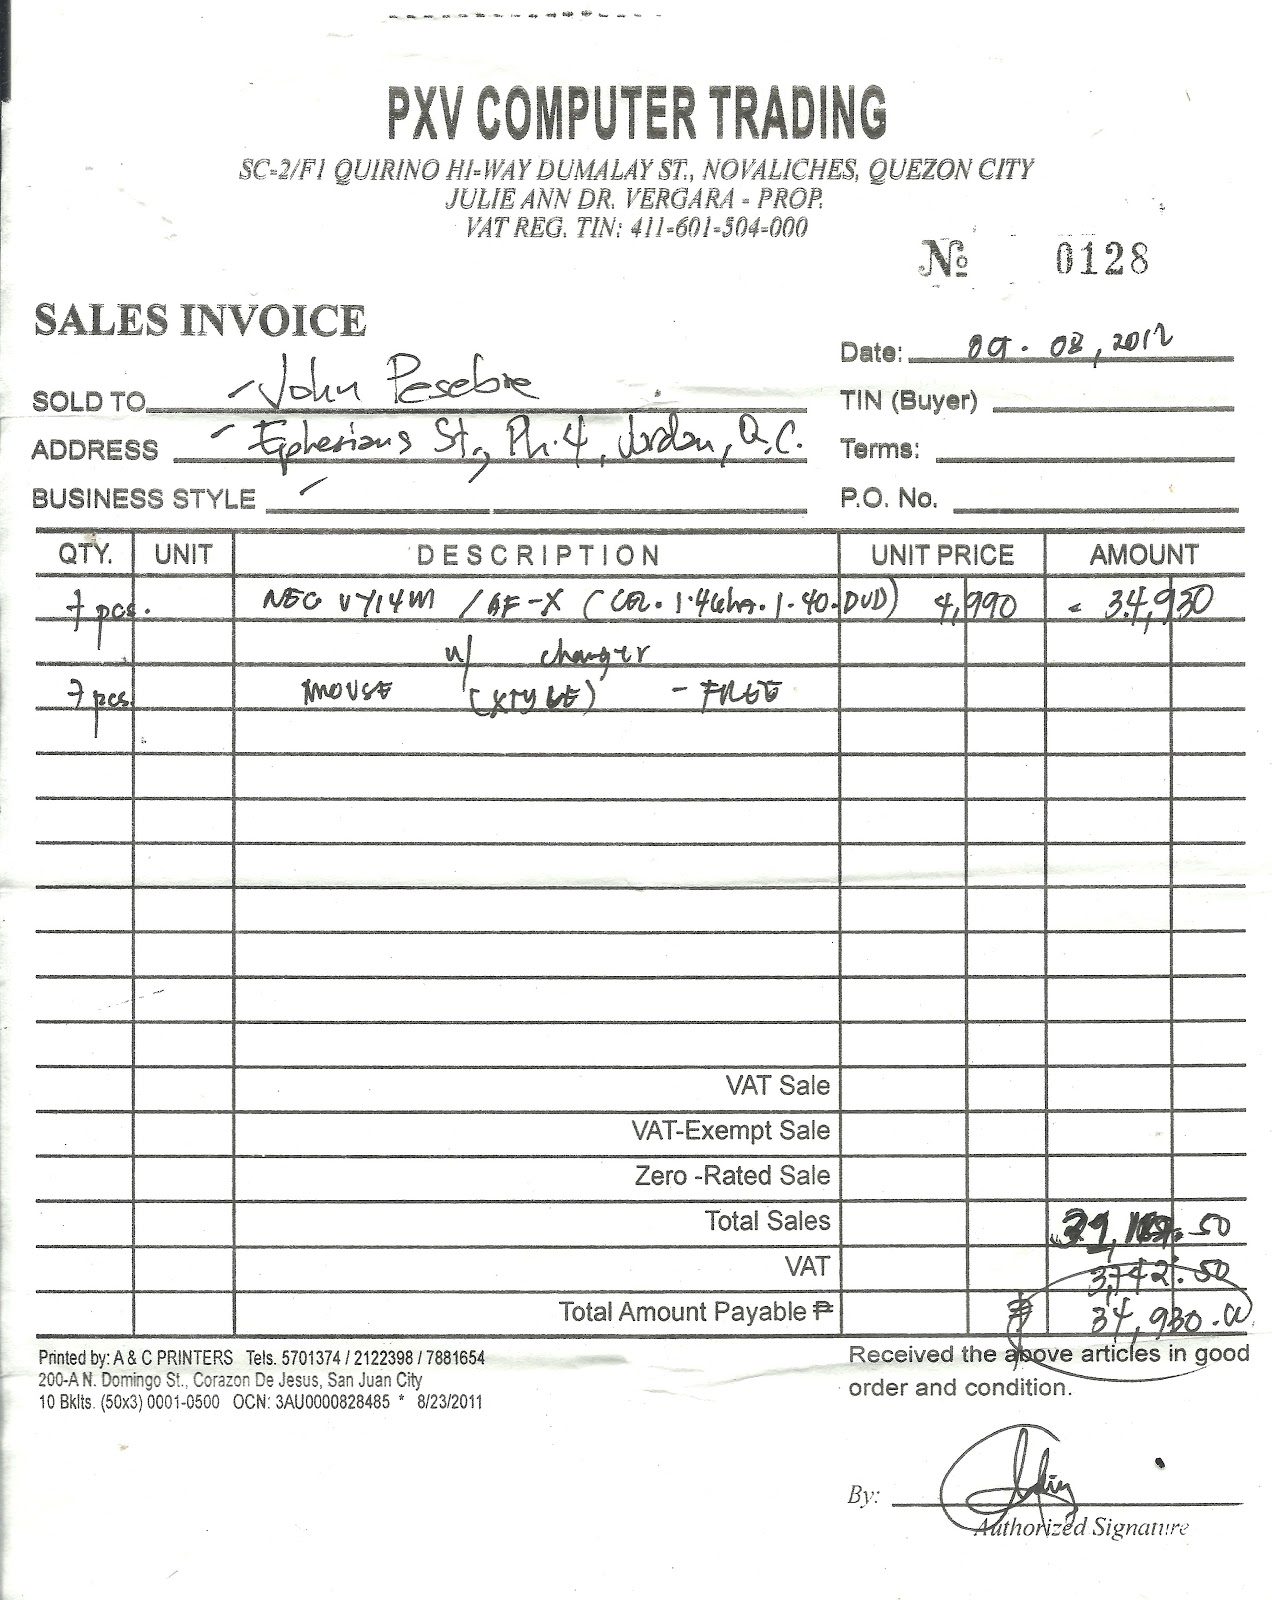 PXV COMPUTER TRADING
SC-2/F1 QUIRINO HI-WAY DUMALAY ST., NOVALICHES, QUEZON CITY
JULIE ANN DR. VERGARA - PROP.
VAT REG. TIN: 411-601-504-000
№ 0128
SALES INVOICE
Date: Oct. 08, 2012
SOLD TO John Pesebre
TIN (Buyer)
ADDRESS Ephesians St., Ph. 4, Jordan, Q.C.
Terms:
BUSINESS STYLE
P.O. No.
QTY. UNIT DESCRIPTION UNIT PRICE AMOUNT
7 pcs. NEC VY14M / AF-X (CEL. 1.4Ghz. 1. 40. DVD) 4,990 34,930
w/ charger
7 pcs. MOUSE (XTYLE) - FREE
VAT Sale
VAT-Exempt Sale
Zero -Rated Sale
Total Sales .50
VAT 3,742.50
Total Amount Payable ₱ ₱ 34,930.00
Printed by: A & C PRINTERS Tels. 5701374 / 2122398 / 7881654
200-A N. Domingo St., Corazon De Jesus, San Juan City
10 Bklts. (50x3) 0001-0500 OCN: 3AU0000828485 * 8/23/2011
Received the above articles in good
order and condition.
By:
Authorized Signature